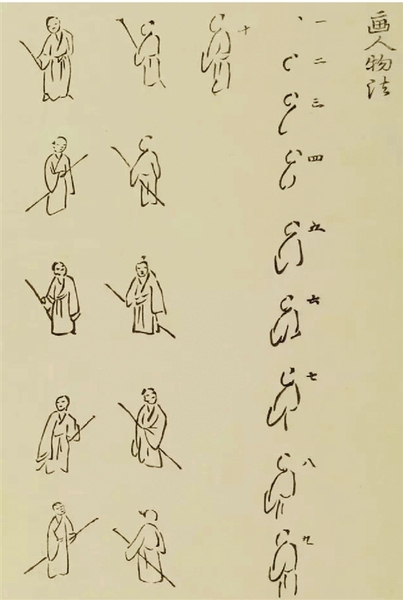 画人物法
一
二
三
四
五
六
七
八
九
十